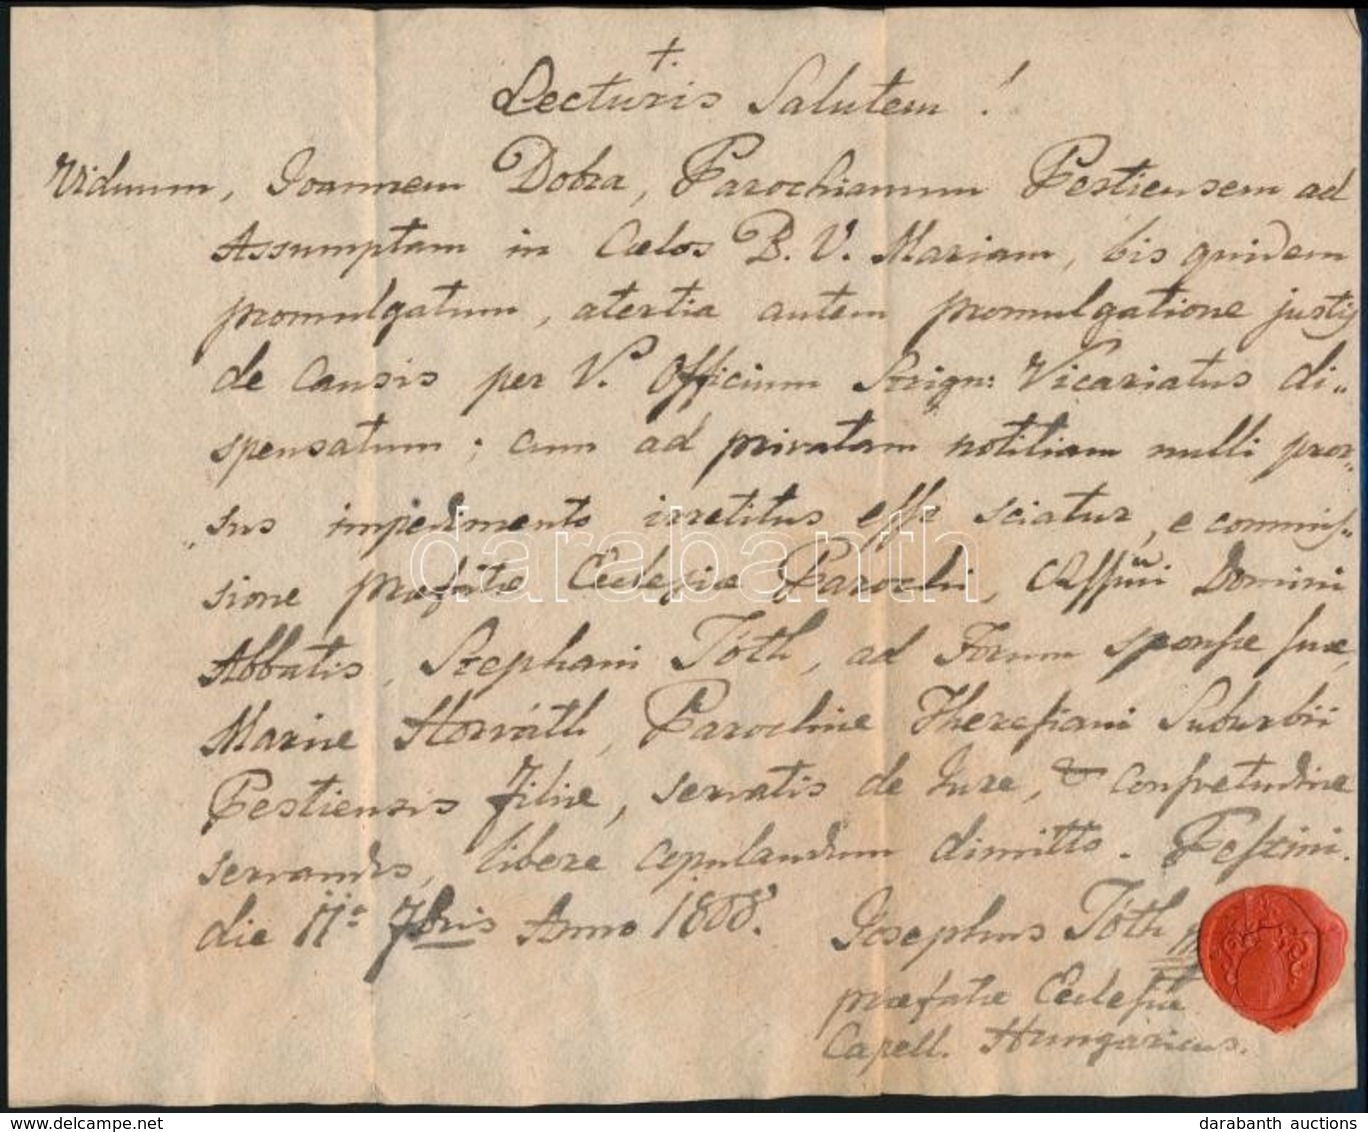 +.
Lecturis Salutem!
Viduum, Joannem Dobra, Parochianum Pestiensem ad
Assumptam in Cœlos B. V. Mariam, bis quidem
promulgatum, a tertia autem promulgatione justis
de Causis per V. Officium Strign: Vicariatus di-
spensatum; cum ad privatam notitiam nulli pror-
sus impedimento irretitus esse sciatur, e commis-
sione præfatæ Ecclesiæ Parochi, Domini
Abbatis, Stephani Tóth, ad Forum sponsæ suæ,
Mariæ Horváth, Parochiæ Theresiani Suburbii
Pestiensis filiæ, servatis de Jure, & Consvetudine
servandis, libere copulandum dimitto. Pestini.
die 11a 7bris Anno 1808.
Josephus Tóth
præfatæ Ecclesiæ
Capell. Hungaricus.
darabanth
www.delcampe.net
darabanth auctions